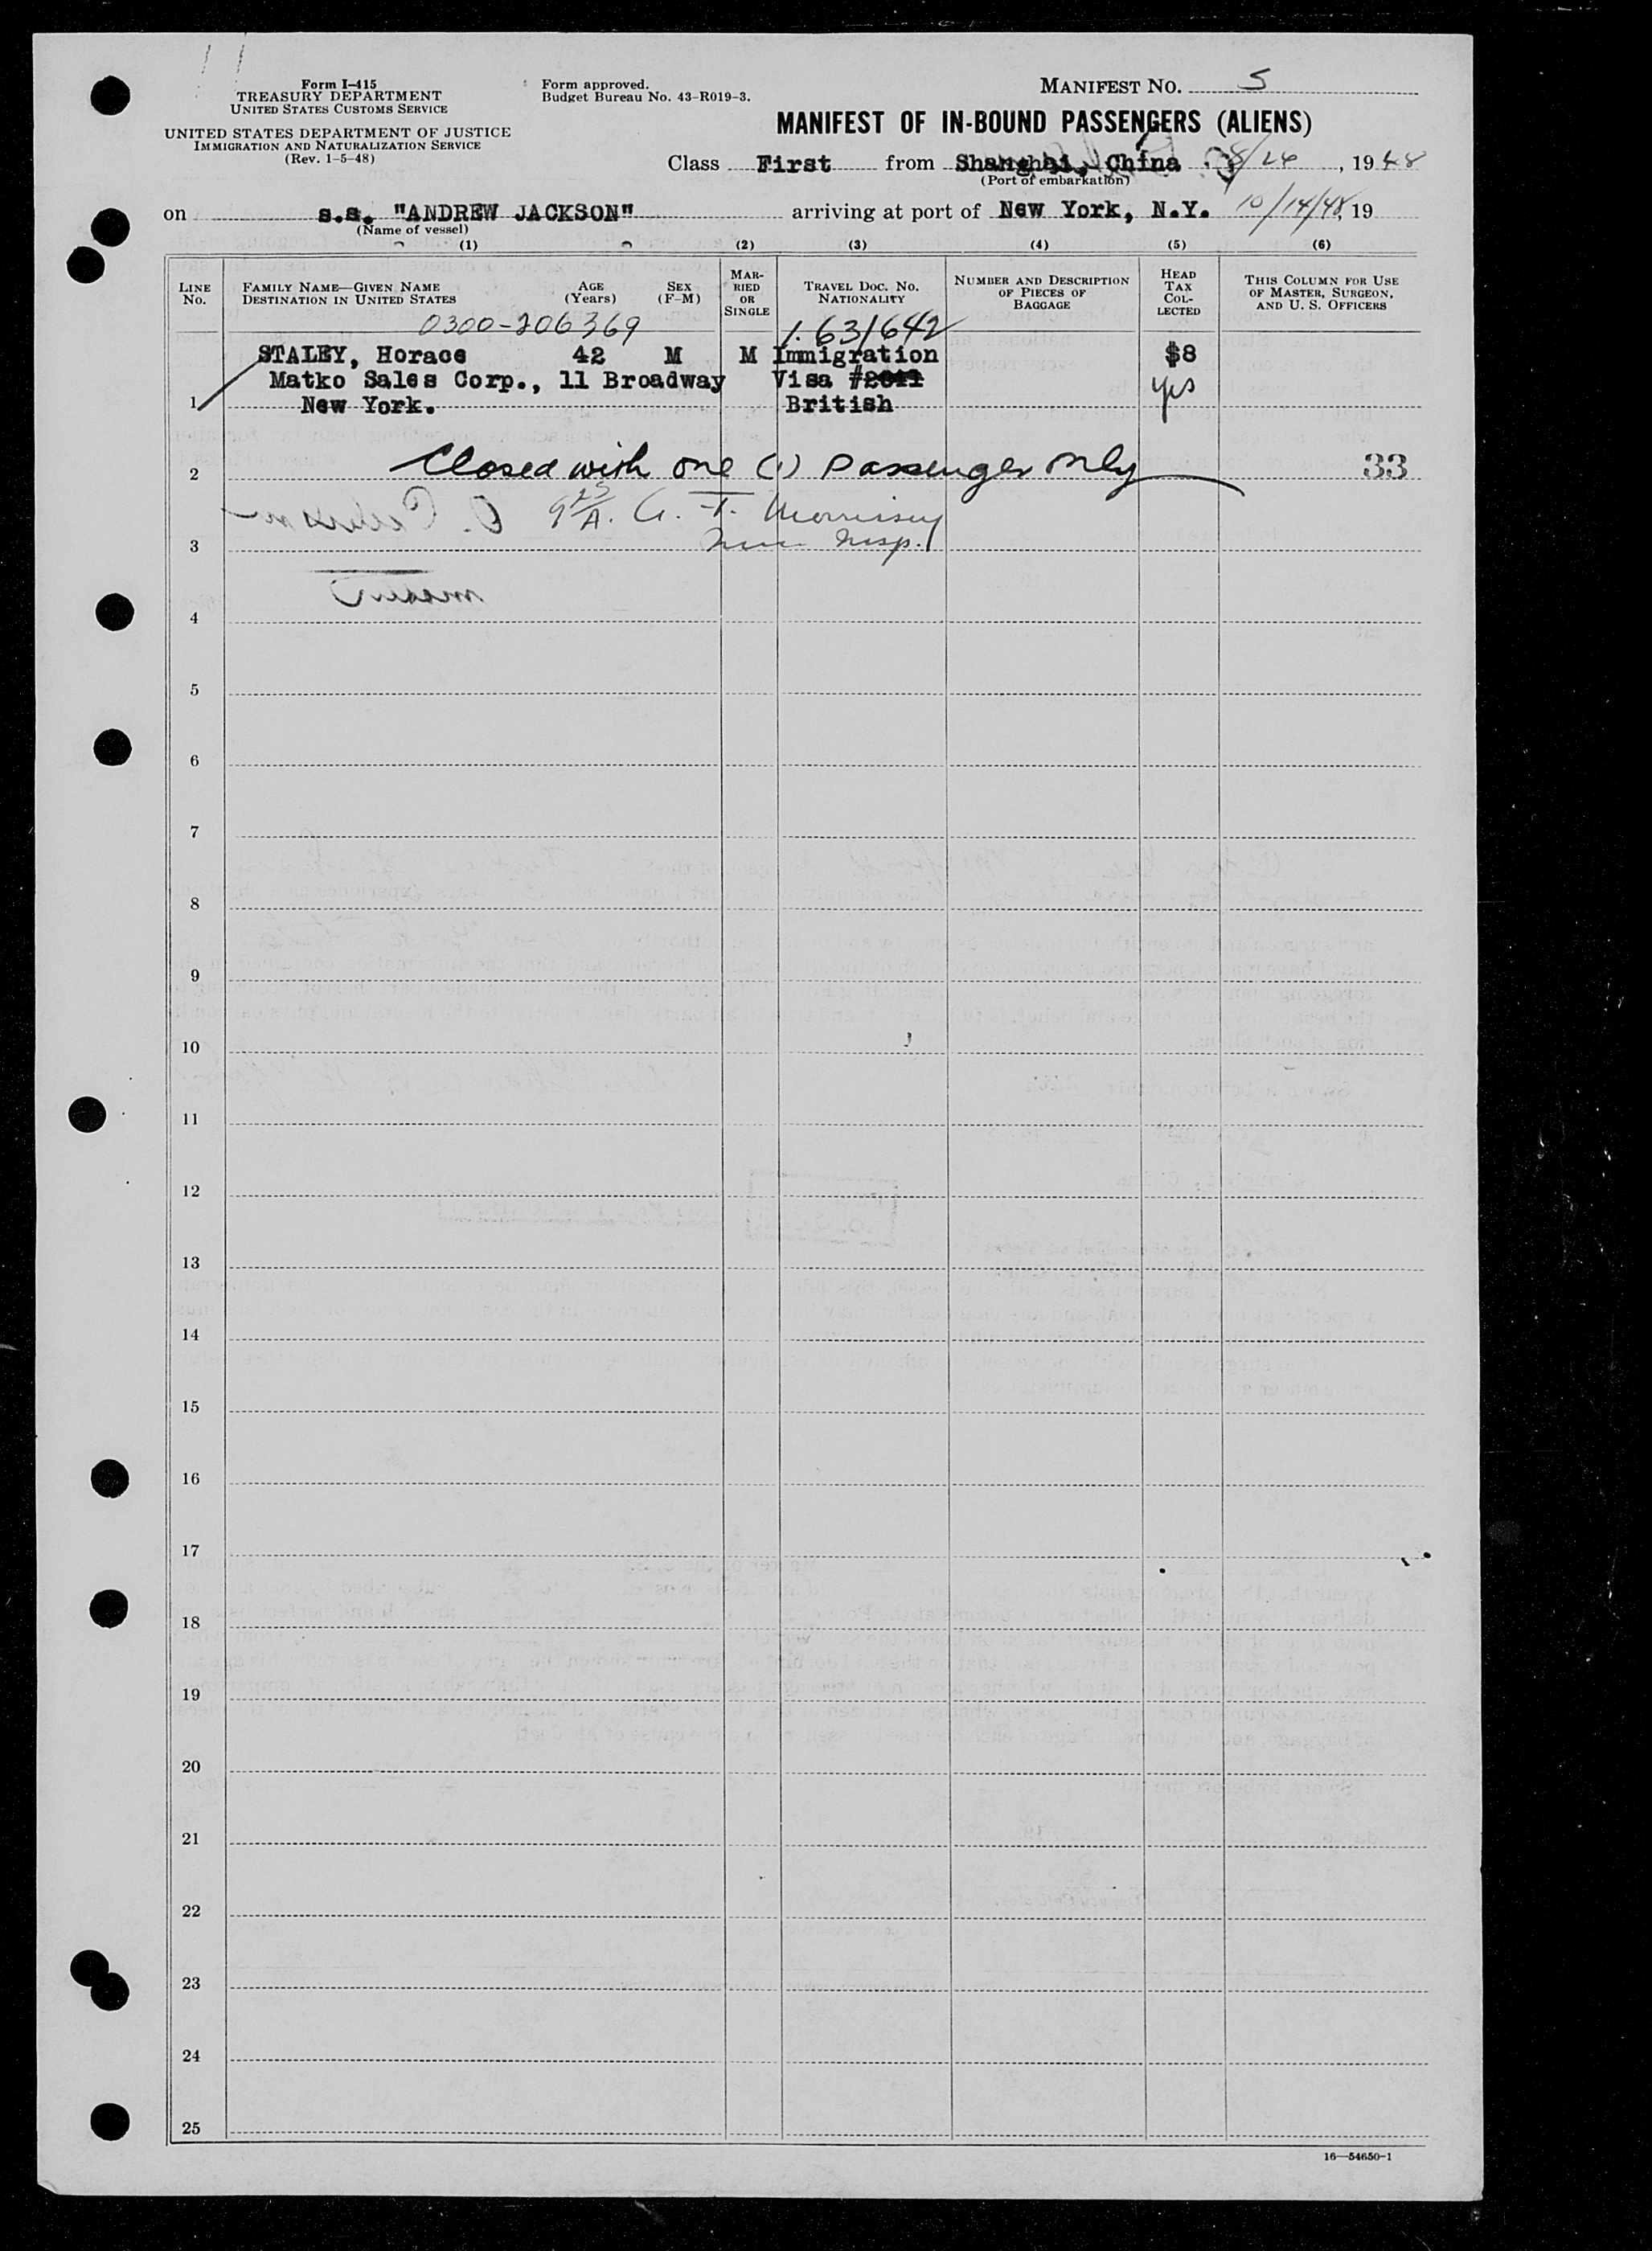 Form I-415
TREASURY DEPARTMENT
UNITED STATES CUSTOMS SERVICE
UNITED STATES DEPARTMENT OF JUSTICE
IMMIGRATION AND NATURALIZATION SERVICE
(Rev. 1-5-48)
Form approved.
Budget Bureau No. 43-R019-3.
MANIFEST NO. 5
MANIFEST OF IN-BOUND PASSENGERS (ALIENS)
Class First from Shanghai, China 8/26, 1948
(Port of embarkation)
on s.s. "ANDREW JACKSON" arriving at port of New York, N.Y. 10/14/48, 19
(Name of vessel)
(1) (2) (3) (4) (5) (6)
LINE No.
FAMILY NAME—GIVEN NAME
DESTINATION IN UNITED STATES
AGE (Years)
SEX (F-M)
MARRIED OR SINGLE
TRAVEL DOC. NO.
NATIONALITY
NUMBER AND DESCRIPTION OF PIECES OF BAGGAGE
HEAD TAX COLLECTED
THIS COLUMN FOR USE OF MASTER, SURGEON, AND U. S. OFFICERS
0300-206369 1.631642
STALEY, Horace 42 M M Immigration $8
Matko Sales Corp., 11 Broadway Visa #2011 yes
1 New York. British
2 Closed with one (1) Passenger only 33
A. G. T. Morrissey
3 Insp.
4
5
6
7
8
9
10
11
12
13
14
15
16
17
18
19
20
21
22
23
24
25
16—54650-1